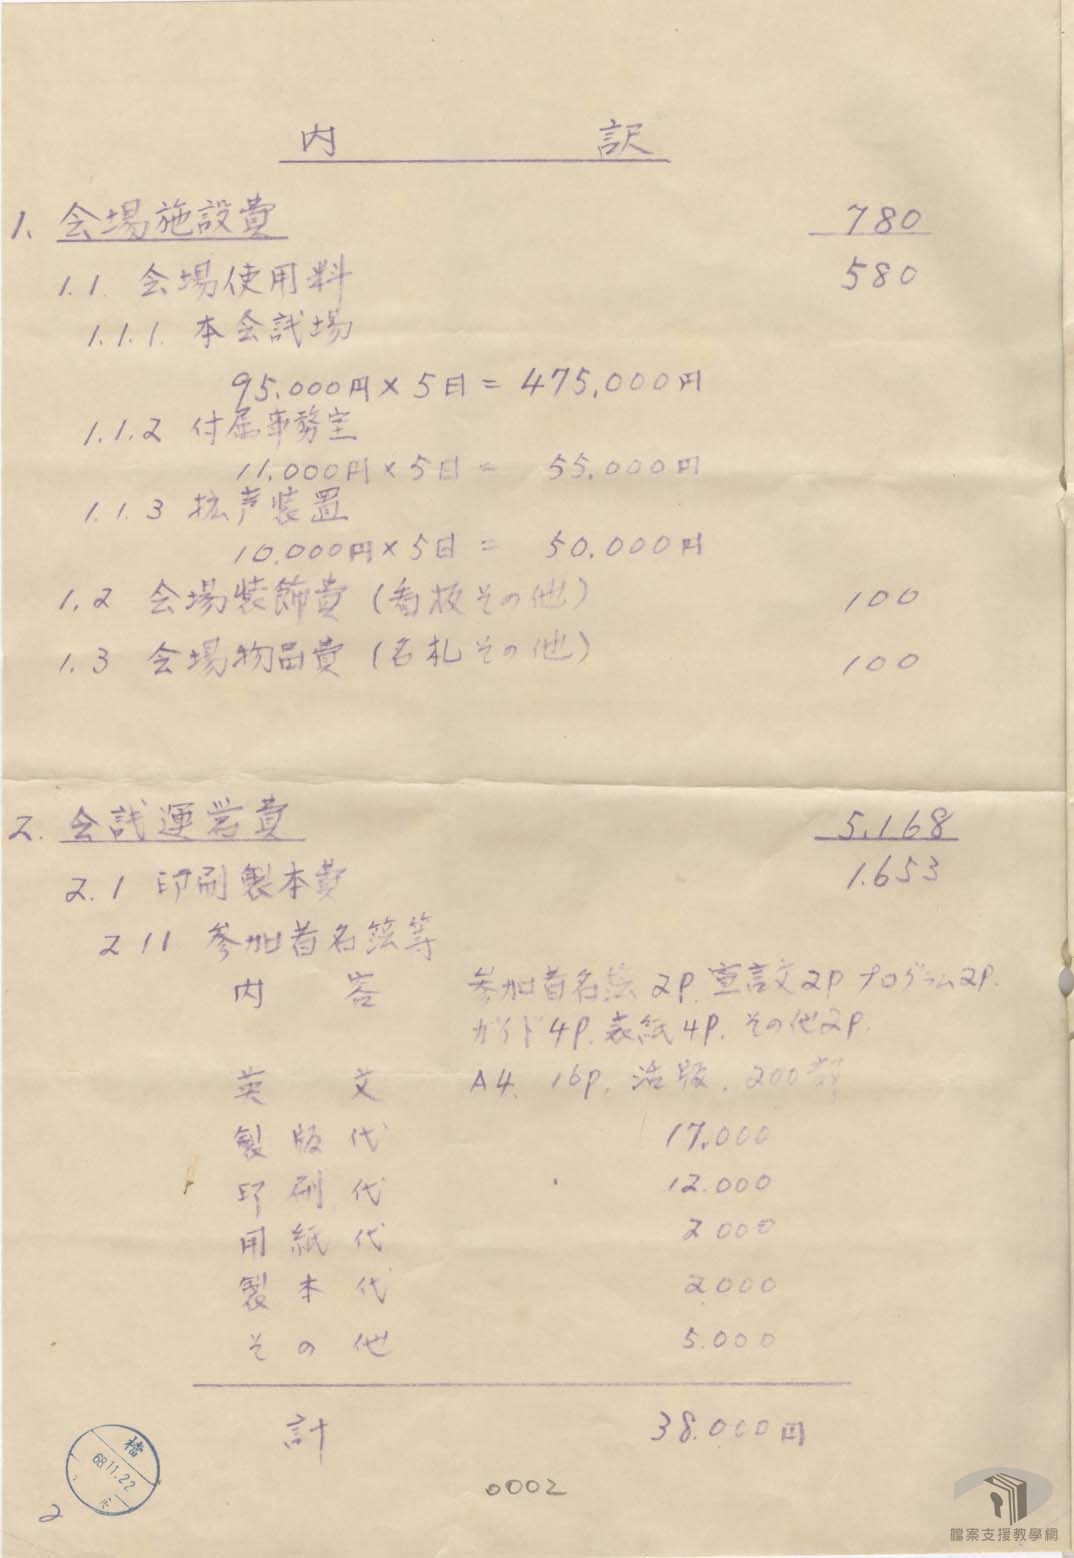 内 訳
1. 会場施設費 780
1.1. 会場使用料 580
1.1.1. 本会試場
95.000円×5日= 475,000円
1.1.2 付属事務室
11,000円×5日= 55,000円
1.1.3 拡声装置
10.000円×5日= 50.000円
1.2 会場装飾費(看板その他) 100
1.3 会場物品費(名札その他) 100
2. 会試運営費 5.168
2.1 印刷製本費 1.653
211 参加者名簿等
内容 参加者名簿2P. 宣言文2P プログラム2P.
ガイド4P. 表紙4P. その他2P.
英文 A4. 16P. 活版. 200部
製版代 17.000
印刷代 12.000
用紙代 2000
製本代 2.000
その他 5.000
計 38.000円
檔
68.11.22
0002
2
檔案支援教學網